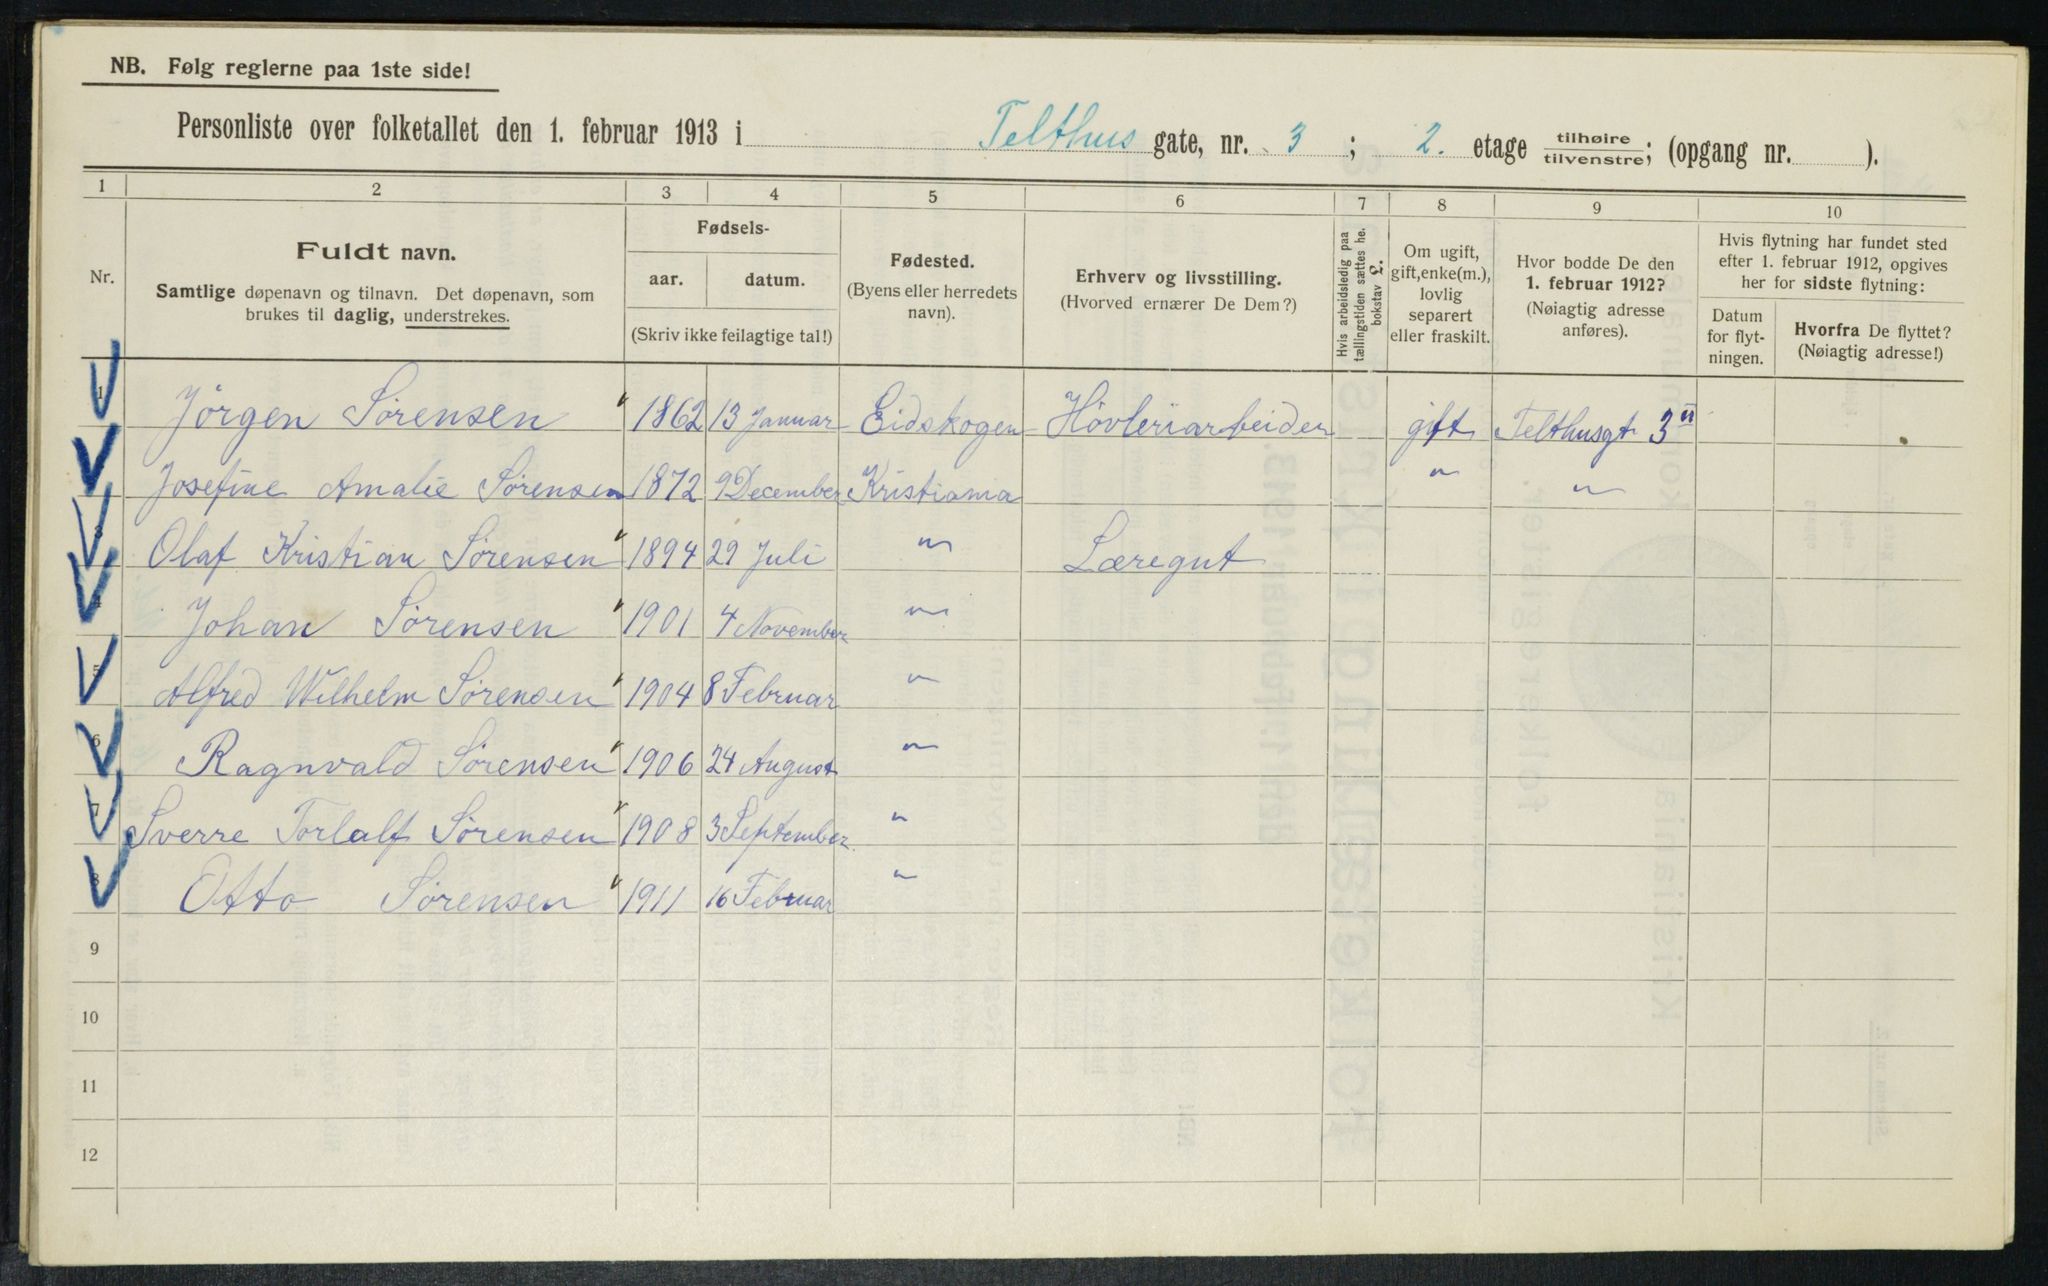 NB. Følg reglerne paa 1ste side!
Personliste over folketallet den 1. februar 1913 i Telthus gate, nr. 3 ; 2. etage tilhøire / tilvenstre; (opgang nr. ).
1 2 3 4 5 6 7 8 9 10
Nr.
Fuldt navn.
Samtlige døpenavn og tilnavn. Det døpenavn, som
brukes til daglig, understrekes.
Fødsels-
aar. datum.
(Skriv ikke feilagtige tal!)
Fødested.
(Byens eller herredets
navn).
Erhverv og livsstilling.
(Hvorved ernærer De Dem?)
Hvis arbeidsledig paa
tællingstiden sættes he.
bokstav L.
Om ugift,
gift, enke(m.),
lovlig
separert
eller fraskilt.
Hvor bodde De den
1. februar 1912?
(Nøiagtig adresse
anføres).
Hvis flytning har fundet sted
efter 1. februar 1912, opgives
her for sidste flytning:
Datum
for flyt-
ningen.
Hvorfra De flyttet?
(Nøiagtig adresse!)
1 Jörgen Sørensen 1862 13 Januar Eidskogen Hövleriarbeider gift Telthusgt 3 II
Josefine Amalie Sørensen 1872 9 December Kristiania " "
3 Olaf Kristian Sørensen 1894 29 Juli " Læregut
4 Johan Sørensen 1901 4 November "
5 Alfred Wilhelm Sørensen 1904 8 Februar "
6 Ragnvald Sørensen 1906 24 August "
7 Sverre Torlalf Sørensen 1908 3 September "
8 Otto Sørensen 1911 16 Februar "
9
10
11
12